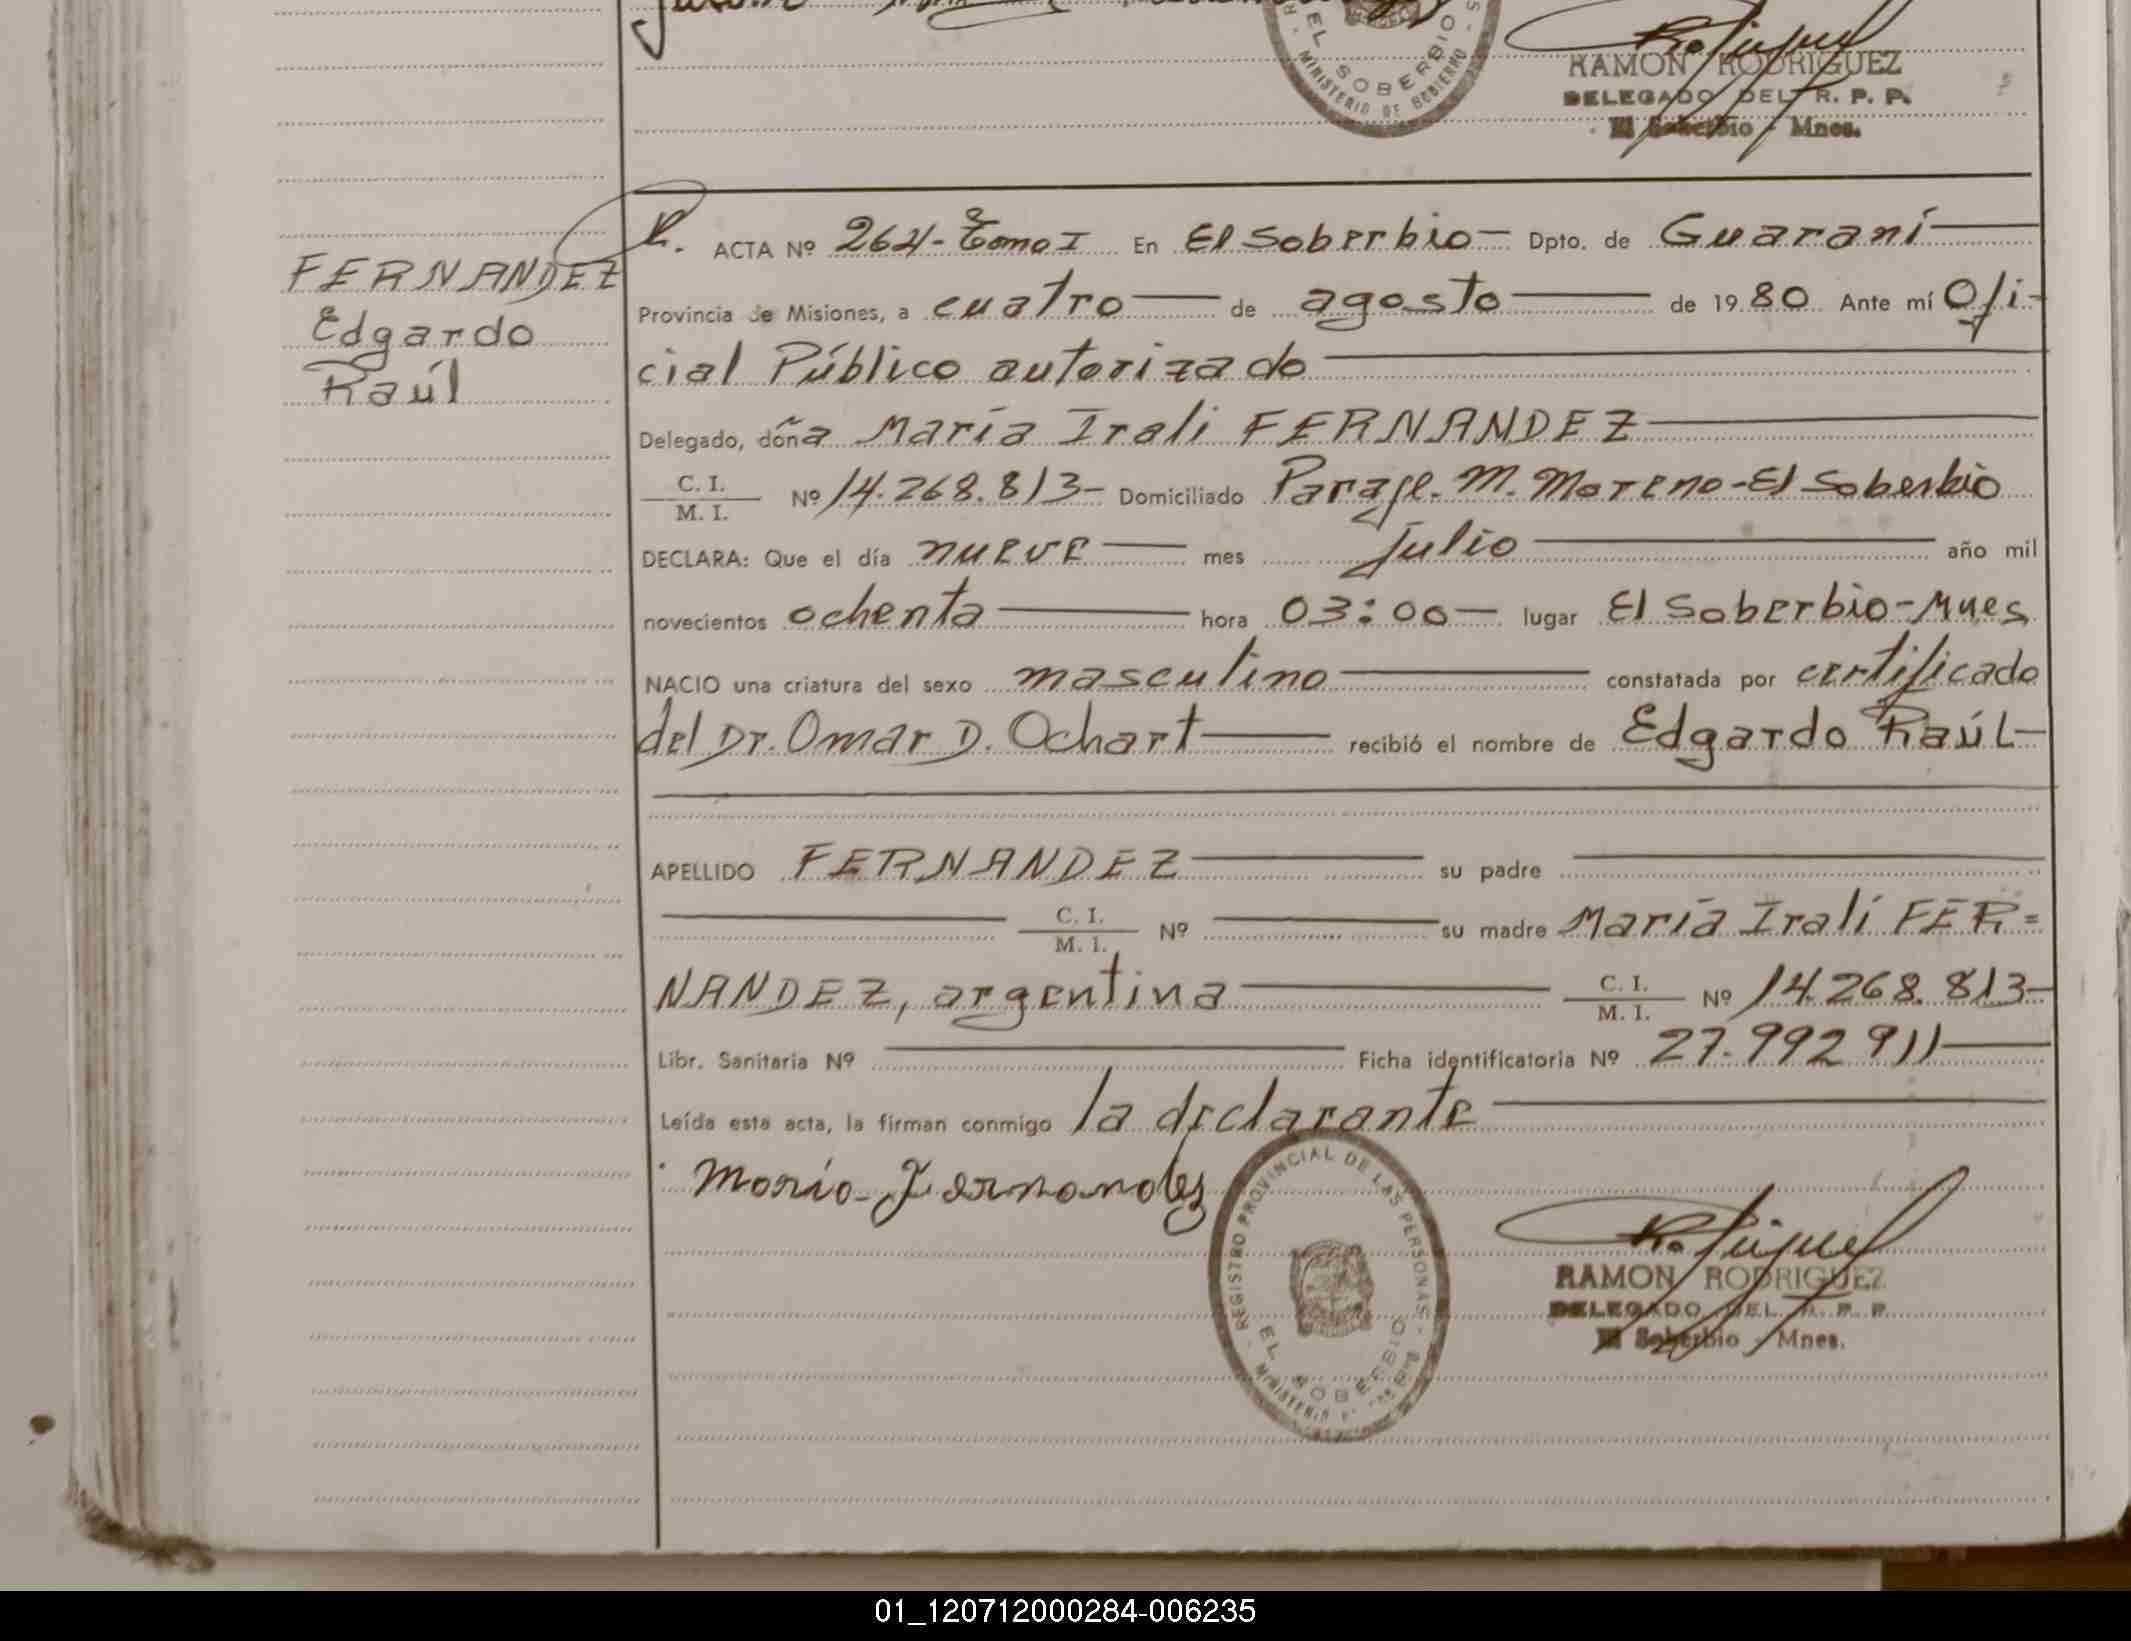 EL SOBERBIO
MINISTERIO DE GOBIERNO
RAMON RODRIGUEZ
DELEGADO DEL R. P. P.
El Soberbio - Mnes.
FERNANDEZ
Edgardo
Raúl
ACTA Nº 264- Tomo I En El Soberbio- Dpto. de Guaraní
Provincia de Misiones, a cuatro de agosto de 1980 Ante mí Ofi-
cial Público autorizado
Delegado, doña María Irali FERNANDEZ
C. I.
M. I.
Nº 14.268.813- Domiciliado Paraje. M. Moreno-El Soberbio
DECLARA: Que el día nueve mes julio año mil
novecientos ochenta hora 03:00- lugar El Soberbio-Mnes
NACIO una criatura del sexo masculino constatada por certificado
del Dr. Omar D. Ochart recibió el nombre de Edgardo Raúl-
APELLIDO FERNANDEZ su padre
C. I.
M. I.
Nº su madre María Irali FER=
NANDEZ, argentina C. I.
M. I.
Nº 14.268.813-
Libr. Sanitaria Nº Ficha identificatoria Nº 27.992 911
Leída esta acta, la firman conmigo la declarante
María Fernandez
REGISTRO PROVINCIAL DE LAS PERSONAS
EL SOBERBIO
RAMON RODRIGUEZ
DELEGADO DEL R. P. P.
El Soberbio - Mnes.
01_120712000284-006235